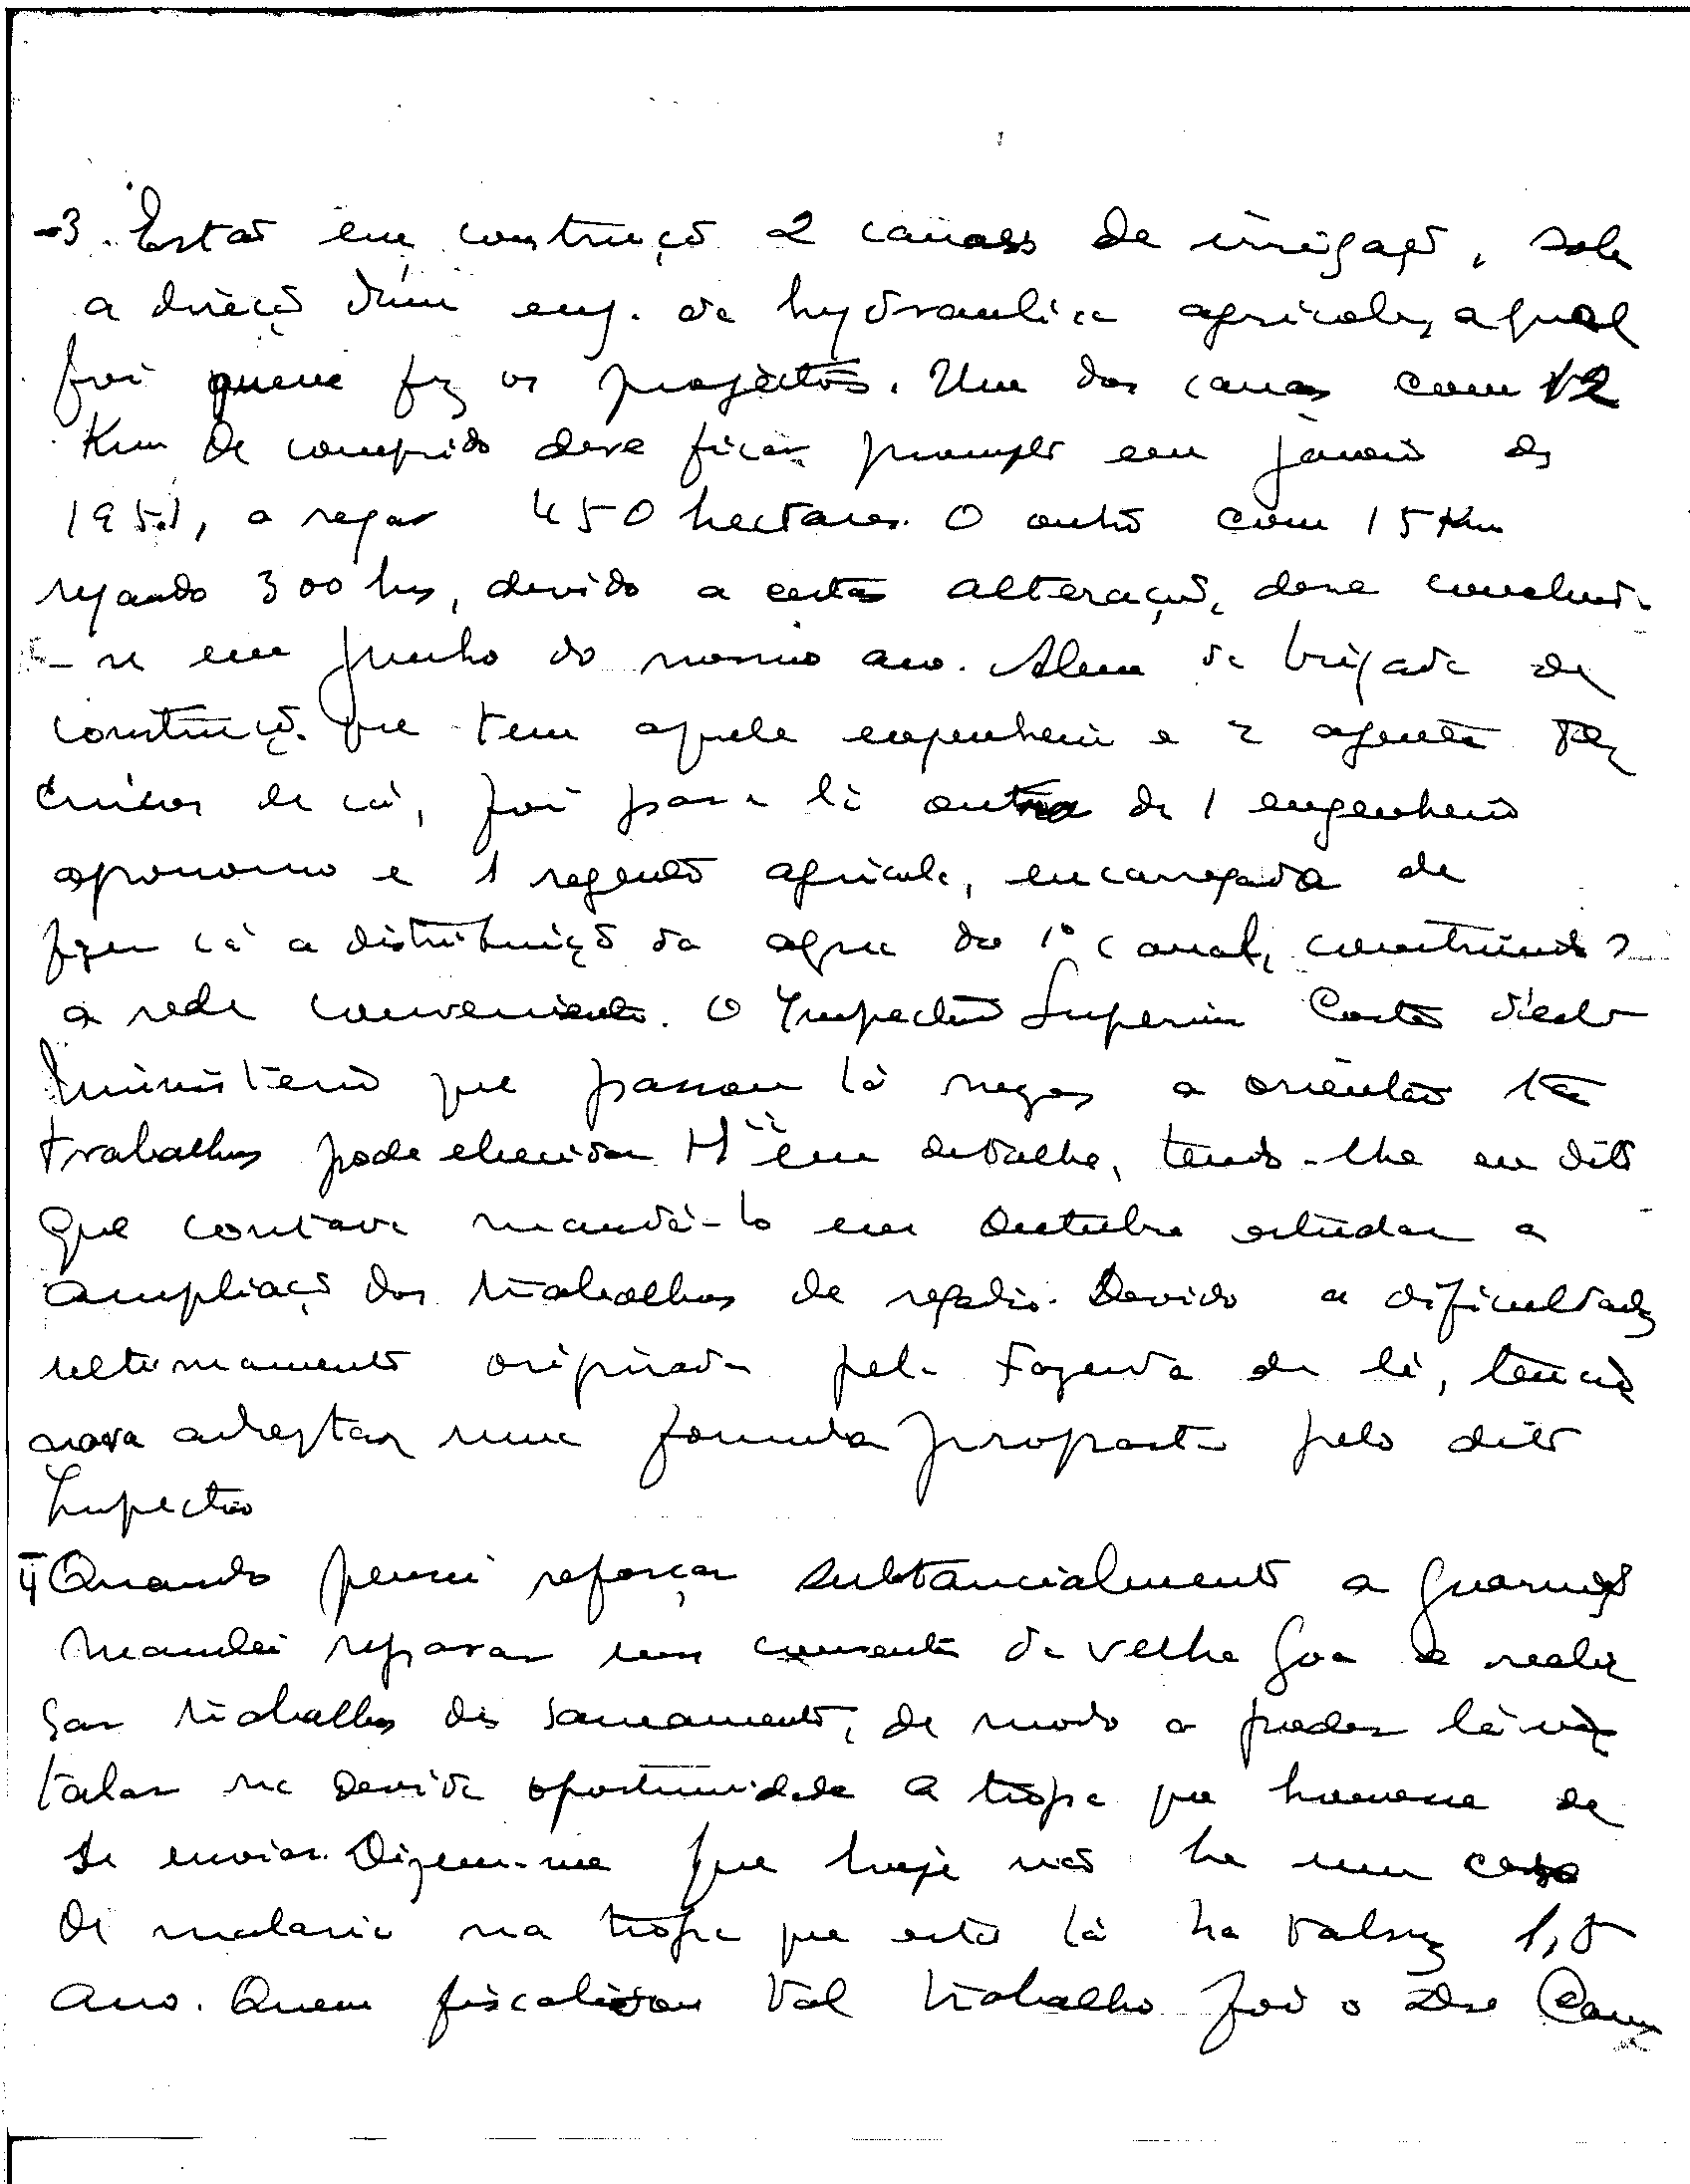 -3. Estão em construção 2 canaes de irrigação, sob
a direcção dum eng. da hydraulica agricola, a qual
foi quem fez os projectos. Um dos canaes com 12
Km de comprido deve ficar prompto em janeiro de
1951, a regar 450 hectares. O outro com 15 Km
regando 300 hs, devido a certas alterações, deve concluir-
-se em junho do mesmo ano. Alem da brigada de
construção que tem aquele engenheiro e 2 agentes te
cnicos de cá, foi para lá outra de 1 engenheiro
agronomo e 1 regente agricola, encarregada de
fazer lá a distribuição da agua do 1º canal, construindo
a rede conveniente. O Inspector Superior Costa deste
Ministerio que passou lá meses a orientar tes
trabalhos pode elucidar em detalhe, tendo-lhe eu dito
que contava mandá-lo em Outubro estudar a
ampliação dos trabalhos de regadio. Devido a dificuldades
ultimamente originadas pela Fazenda de lá, tencio
nava adoptar uma formula proposta pelo dito
Inspector
4 Quando pensei reforçar substancialmente a guarnição
mandei reparar uns conventos da velha Goa e reali
sar trabalhos de saneamento, de modo a poder lá ins
talar na devida oportunidade a tropa que houvesse de
se enviar. Dizem-me que hoje não ha um caso
de malaria na tropa que está lá ha talvez 1,5
ano. Quem fiscalisou tal trabalho foi o Dr Cam